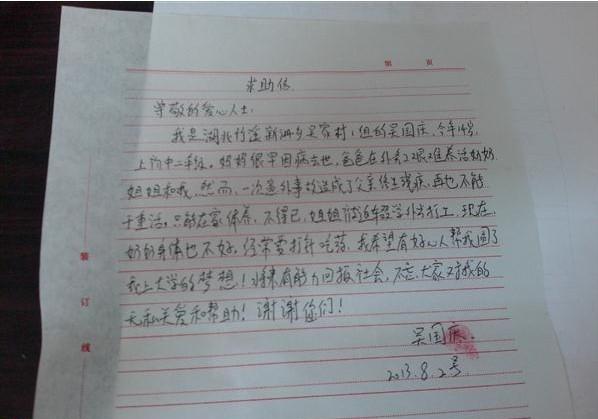 第 页
求助信
尊敬的爱心人士:
我是湖北竹溪新洲乡吴家村1组的吴国庆,今年14岁,
上初中二年级,妈妈很早因病去世,爸爸在外务工艰难养活奶奶
姐姐和我,然而,一次意外事故造成了父亲终生残疾,再也不能
干重活,只能在家休养,不得已,姐姐被迫辍学外出打工,现在
奶奶身体也不好,经常要打针吃药,我希望有好心人帮我圆了
我上大学的梦想!将来有能力回报社会,不忘大家对我的
无私关爱和帮助!谢谢您们!
吴国庆.
2013.8.2号
装
订
线